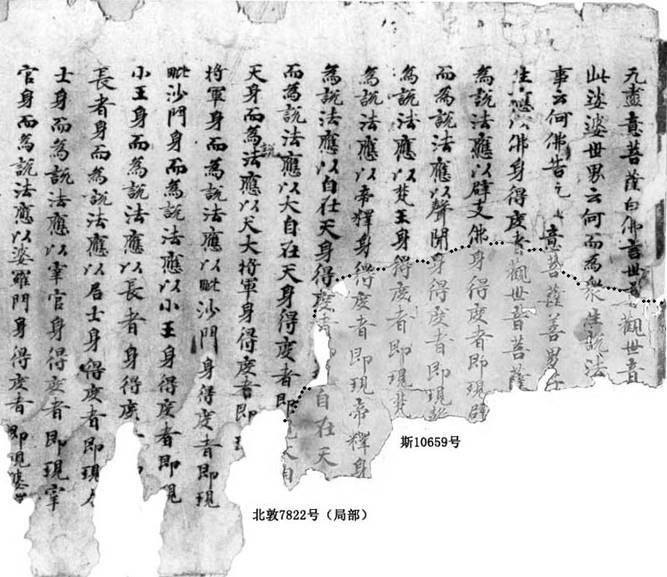 无盡意菩薩白佛言世尊觀世音
此娑婆世界云何而為衆生說法
事云何佛告无意菩薩善男
生應以佛身得度者觀世音菩薩
為說法應以辟支佛身得度者即現辟
而為說法應以聲聞身得度者即現聲
為說法應以梵王身得度者即現梵
為說法應以帝釋身得度者即現帝釋身
為說法應以自在天身得度者自在天
而為說法應以大自在天身得度者即現大自
天身而為說法應以天大將軍身得度者即
將軍身而為說法應以毗沙門身得度者即現
毗沙門身而為說法應以小王身得度者即現
小王身而為說法應以長者身得度
長者身而為說法應以居士身得度者即現
士身而為說法應以宰官身得度者即現宰
官身而為說法應以婆羅門身得度者即現婆
斯10659号
北敦7822号（局部）